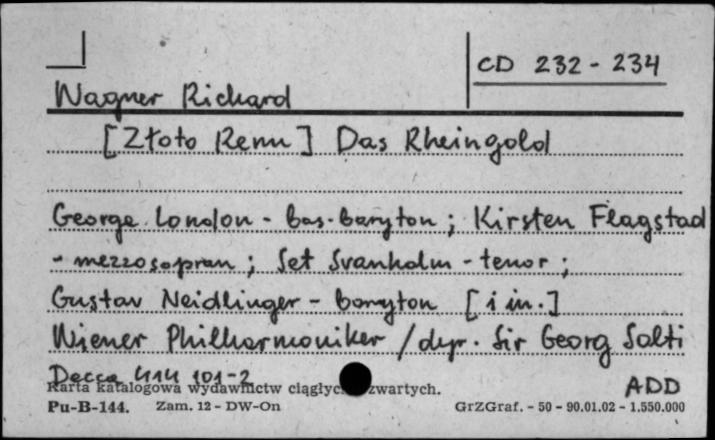 CD 232 - 234
Wagner Richard
[Złoto Renu] Das Rheingold
George London - bas-baryton ; Kirsten Flagstad
- mezzosopran ; Set Svanholm - tenor ;
Gustav Neidlinger - baryton [i in.]
Wiener Philharmoniker / dyr. Sir Georg Solti
Decca 414 101-2
ADD
Karta katalogowa wydawnictw ciągłyc zwartych.
Pu-B-144. Zam. 12 - DW-On GrZGraf. - 50 - 90.01.02 - 1.550.000